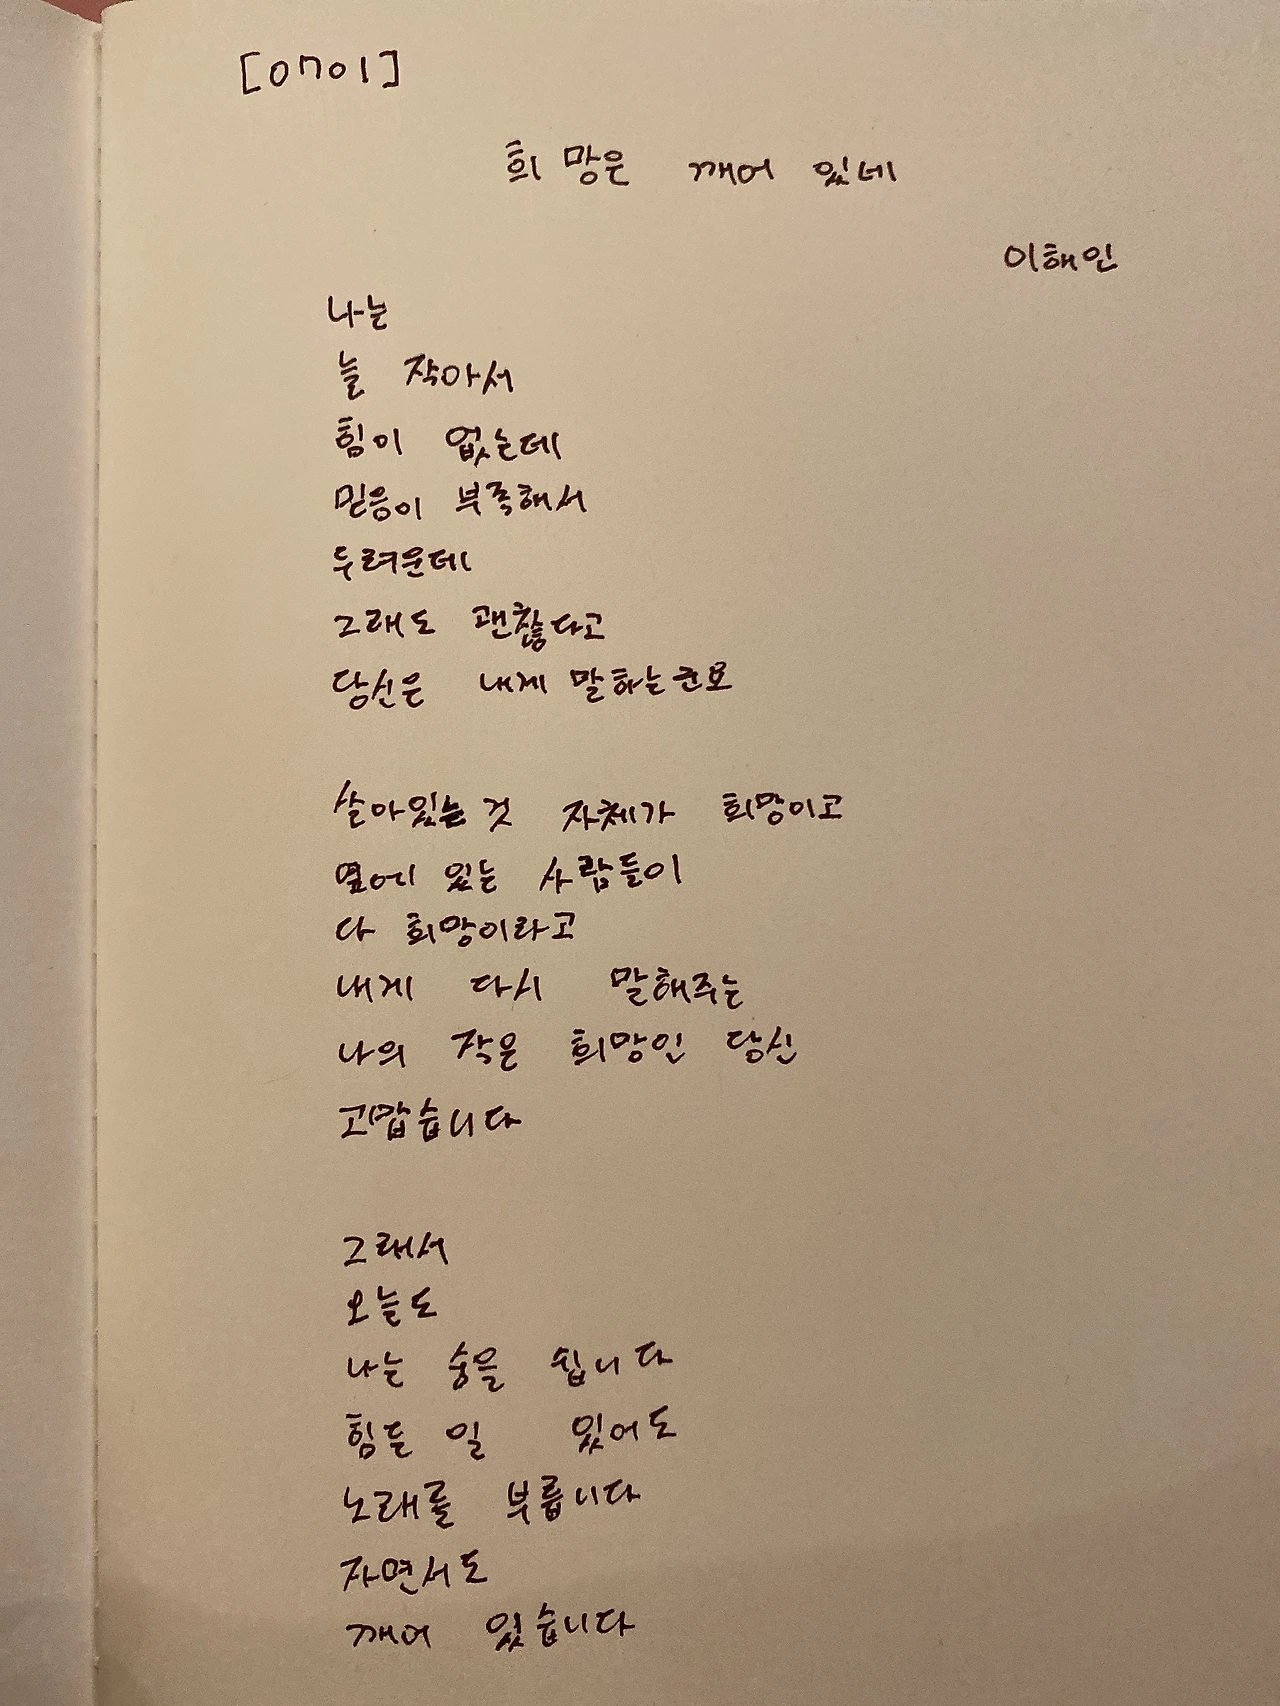 [0701]
희망은 깨어 있네
이해인
나는
늘 작아서
힘이 없는데
믿음이 부족해서
두려운데
그래도 괜찮다고
당신은 내게 말하는군요
살아있는 것 자체가 희망이고
옆에 있는 사람들이
다 희망이라고
내게 다시 말해주는
나의 작은 희망인 당신
고맙습니다
그래서
오늘도
나는 숨을 쉽니다
힘든 일 있어도
노래를 부릅니다
자면서도
깨어 있습니다